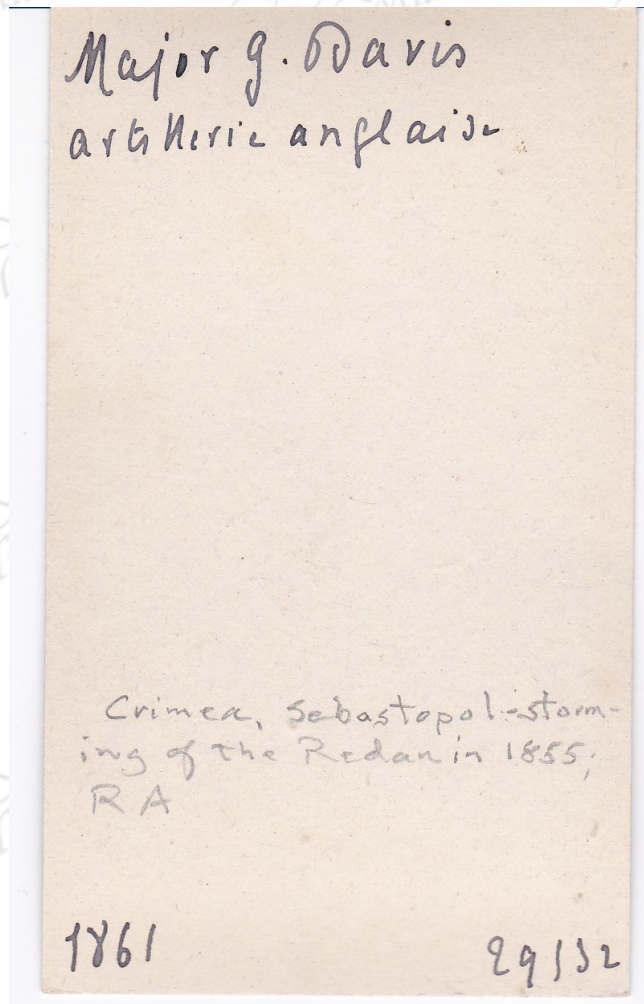 Major G. Davis
artillerie anglaise
Crimea, Sebastopol-storm-
ing of the Redan in 1855;
RA
1861
29/32